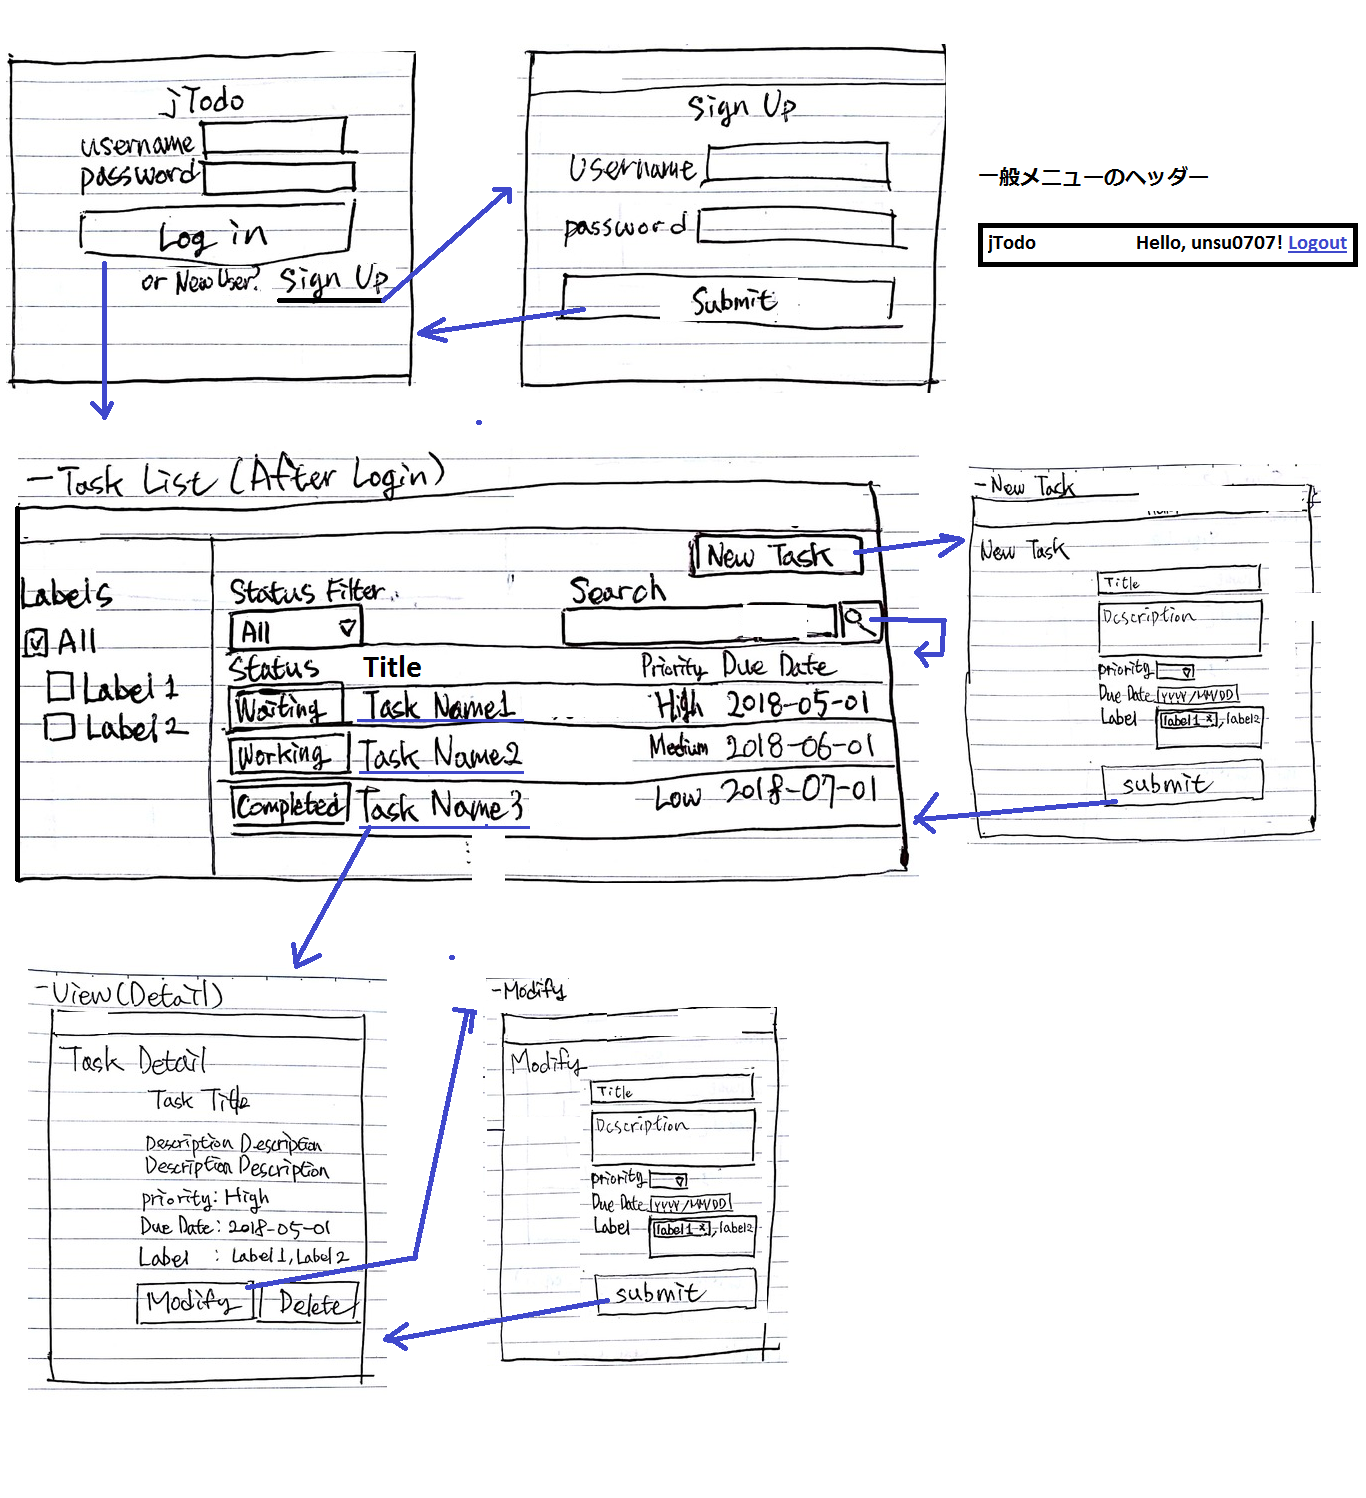 jTodo
username
password
Log in
or New User? Sign Up
Sign Up
username
password
Submit
一般メニューのヘッダー
jTodo Hello, unsu0707! Logout
-Task List (After Login)
New Task
Labels
All
Label 1
Label 2
Status Filter
All
Search
Status Title Priority Due Date
Waiting Task Name1 High 2018-05-01
Working Task Name2 Medium 2018-06-01
Completed Task Name3 Low 2018-07-01
-New Task
New Task
Title
Description
priority
Due Date YYYY/MM/DD
Label label1 x, label2
submit
-View(Detail)
Task Detail
Task Title
Description Description
Description Description
priority: High
Due Date: 2018-05-01
Label : Label 1, Label 2
Modify Delete
-Modify
Modify
Title
Description
priority
Due Date YYYY/MM/DD
Label label1 x, label2
submit